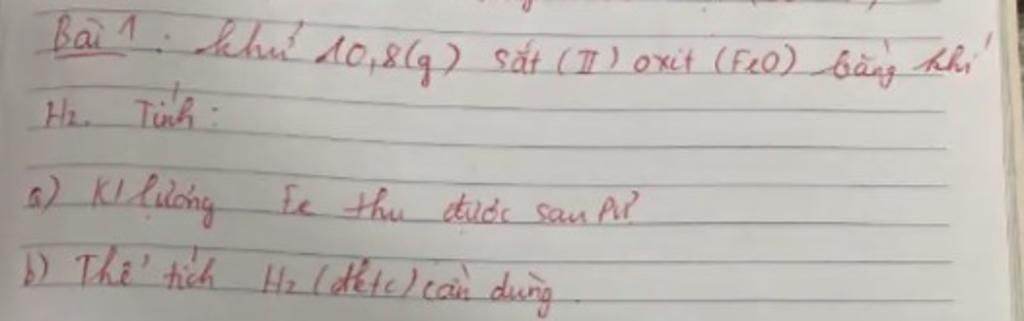 Bài 1: khử 10,8(g) sắt (II) oxit (FeO) bằng khí
H2. Tính:
a) Kl lượng Fe thu được sau Pư?
b) Thể tích H2 (đktc) cần dùng.